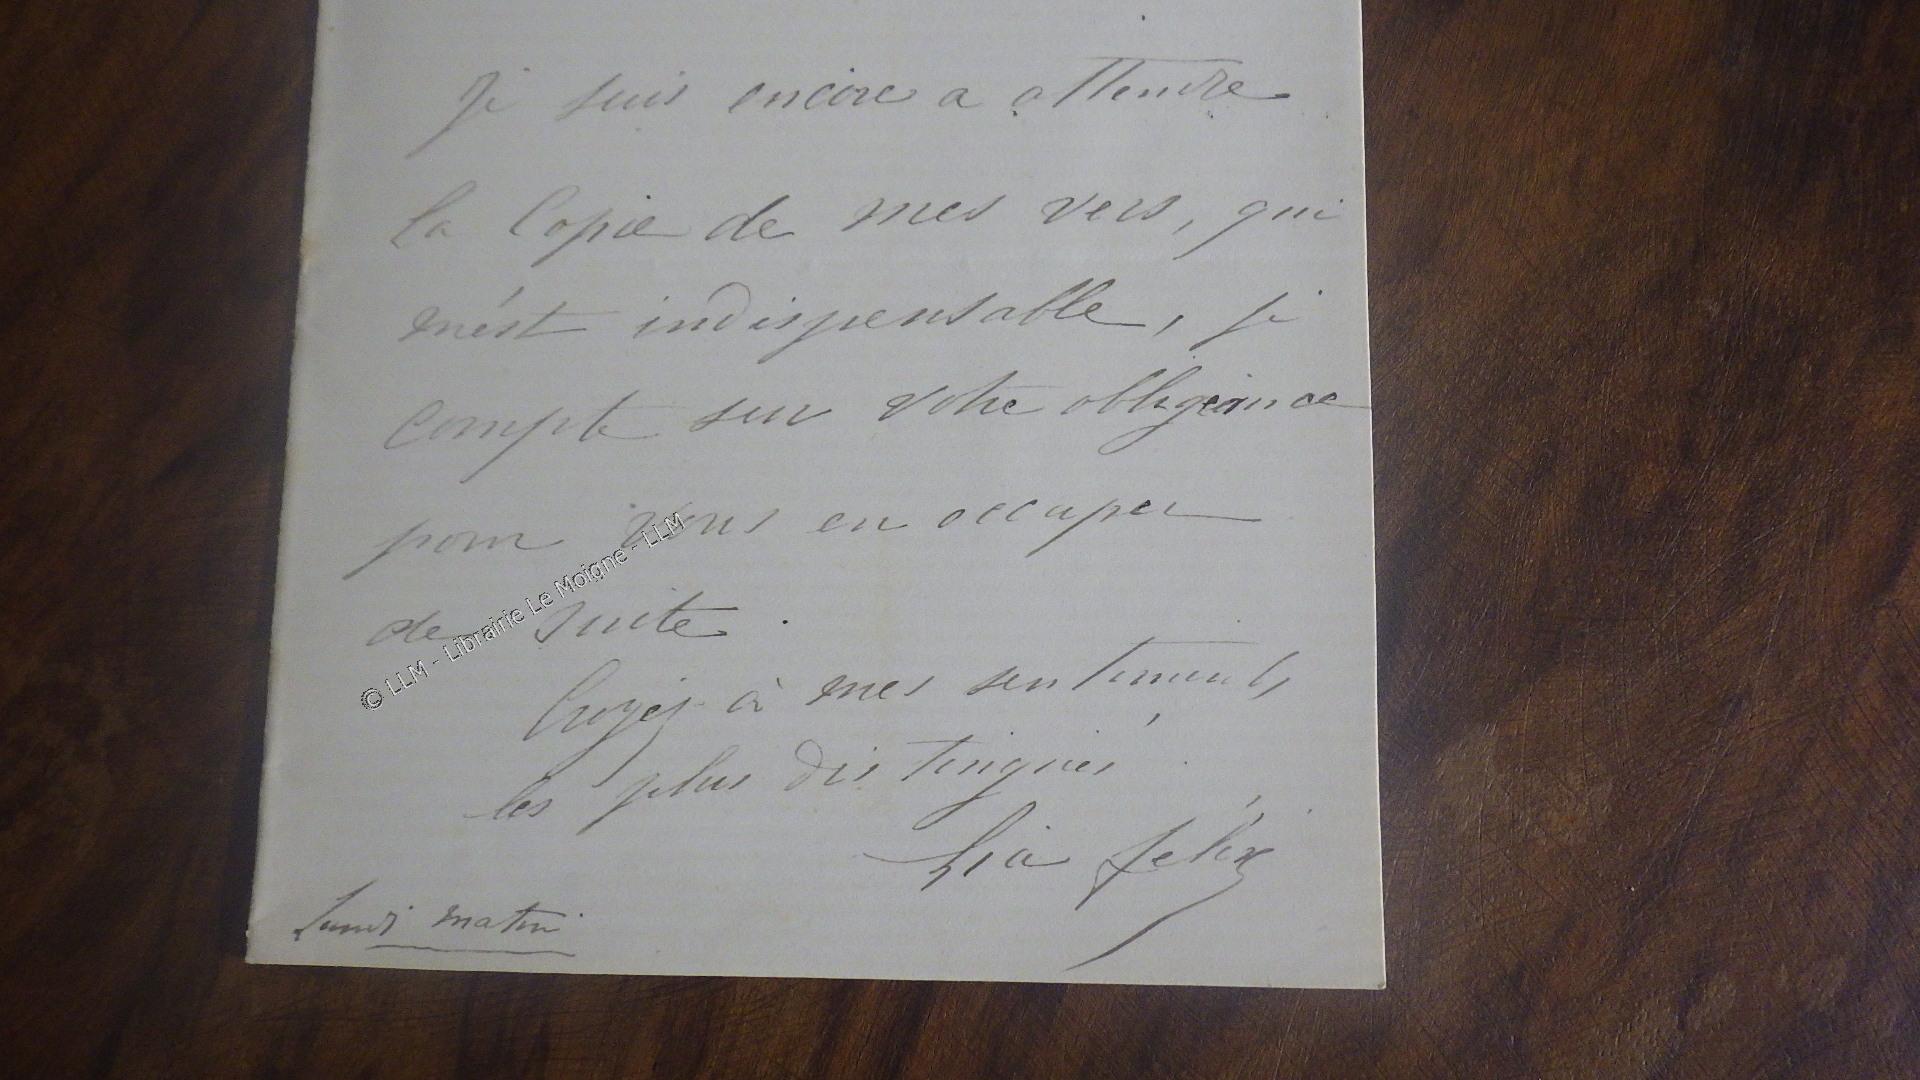 Je suis encore a attendre
la Copie de mes vers, qui
m'ést indispensable, je
compte sur votre obligeance
pour vous en occuper
de suite.
Croyez à mes sentiments
les plus distingués.
Lia Félix
Lundi matin
© LLM - Librairie Le Moigne - LLM